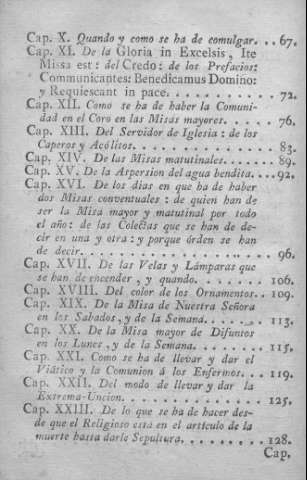 Cap. X. Quando y como se ha de comulgar. . . 67.
Cap. XI. De la Gloria in Excelsis, Ite
Missa est: del Credo: de los Prefacios:
Communicantes: Benedicamus Domino:
y Requiescant in pace. . . . . . . . . . . 72.
Cap. XII. Como se ha de haber la Comuni-
dad en el Coro en las Misas mayores. . . . . 76.
Cap. XIII. Del Servidor de Iglesia: de los
Caperos y Acólitos. . . . . . . . . . . . . 83.
Cap. XIV. De las Misas matutinales. . . . . . 89.
Cap. XV. De la Aspersion del agua bendita. . . 92.
Cap. XVI. De los dias en que ha de haber
dos Misas conventuales: de quien han de
ser la Misa mayor y matutinal por todo
el año: de las Colectas que se han de de-
cir en una y otra: y porque órden se han
de decir. . . . . . . . . . . . . . . . . . 96.
Cap. XVII. De las Velas y Lámparas que
se han de encender, y quando. . . . . . . 106.
Cap. XVIII. Del color de los Ornamentos. . 109.
Cap. XIX. De la Misa de Nuestra Señora
en los Sabados, y de la Semana. . . . . . 113.
Cap. XX. De la Misa mayor de Difuntos
en los Lunes, y de la Semana. . . . . . . 115.
Cap. XXI. Como se ha de llevar y dar el
Viático y la Comunion á los Enfermos. . . 119.
Cap. XXII. Del modo de llevar y dar la
Extrema-Uncion. . . . . . . . . . . . . . 125.
Cap. XXIII. De lo que se ha de hacer des-
de que el Religioso está en el artículo de la
muerte hasta darle Sepultura. . . . . . . . 128.
Cap.